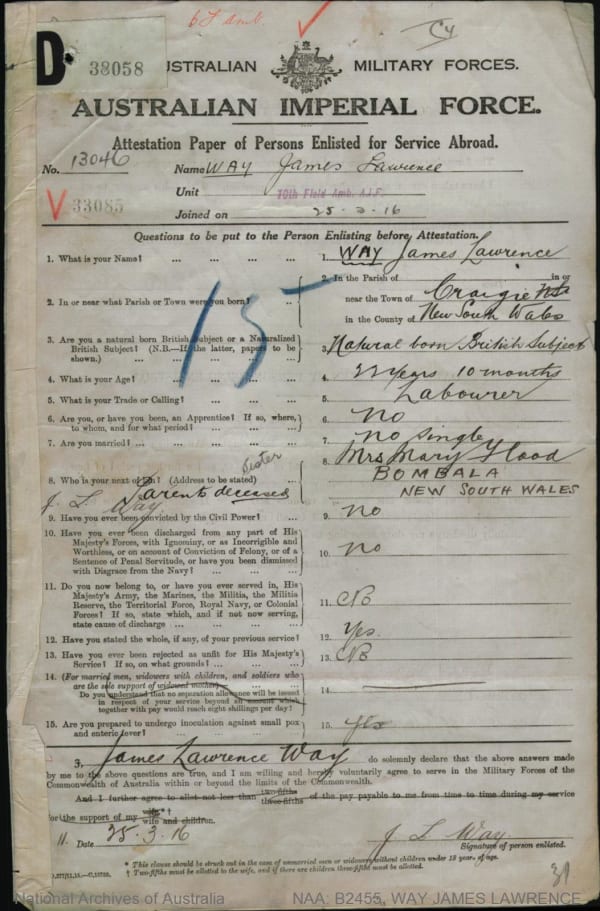 6 F. Amb.
D
33058
AUSTRALIAN MILITARY FORCES.
AUSTRALIAN IMPERIAL FORCE.
Attestation Paper of Persons Enlisted for Service Abroad.
No. 13046 Name WAY James Lawrence
Unit 10th Field Amb. A.I.F.
33085
Joined on 25-3-16
Questions to be put to the Person Enlisting before Attestation.
1. What is your Name? ... ... ... ... 1. WAY James Lawrence
2. In or near what Parish or Town were you born? .. 2. In the Parish of in or
near the Town of Craigie
in the County of New South Wales
3. Are you a natural born British Subject or a Naturalized
British Subject? (N.B.—If the latter, papers to be
shown.) 3. Natural born British Subject
4. What is your Age? 4. 22 years 10 months
5. What is your Trade or Calling? 5. Labourer
6. Are you, or have you been, an Apprentice? If so, where,
to whom, and for what period? 6. No
7. Are you married? 7. No single
Sister
8. Who is your next of kin? (Address to be stated) 8. Mrs Mary Flood
BOMBALA
NEW SOUTH WALES
Parents deceased
J. L. Way
9. Have you ever been convicted by the Civil Power? 9. No
10. Have you ever been discharged from any part of His
Majesty's Forces, with Ignominy, or as Incorrigible and
Worthless, or on account of Conviction of Felony, or of a
Sentence of Penal Servitude, or have you been dismissed
with Disgrace from the Navy? 10. No
11. Do you now belong to, or have you ever served in, His
Majesty's Army, the Marines, the Militia, the Militia
Reserve, the Territorial Force, Royal Navy, or Colonial
Forces? If so, state which, and if not now serving,
state cause of discharge 11.
12. Have you stated the whole, if any, of your previous service? 12. Yes
13. Have you ever been rejected as unfit for His Majesty's
Service? If so, on what grounds? 13.
14. (For married men, widowers with children, and soldiers who
are the sole support of widowed mother)—
Do you understand that no separation allowance will be issued
in respect of your service beyond an amount which
together with pay would reach eight shillings per day? 14.
15. Are you prepared to undergo inoculation against small pox
and enteric fever? 15. Yes
15
I, James Lawrence Way do solemnly declare that the above answers made
by me to the above questions are true, and I am willing and hereby voluntarily agree to serve in the Military Forces of the
Commonwealth of Australia within or beyond the limits of the Commonwealth.
And I further agree to allot not less than two-fifths three-fifths of the pay payable to me from time to time during my service
for the support of my wife* wife and children.†
Date 25.3.16 J L Way
Signature of person enlisted.
* This clause should be struck out in the case of unmarried men or widowers without children under 18 year of age.
† Two-fifths must be allotted to the wife, and if there are children three-fifths must be allotted.
National Archives of Australia NAA: B2455, WAY JAMES LAWRENCE